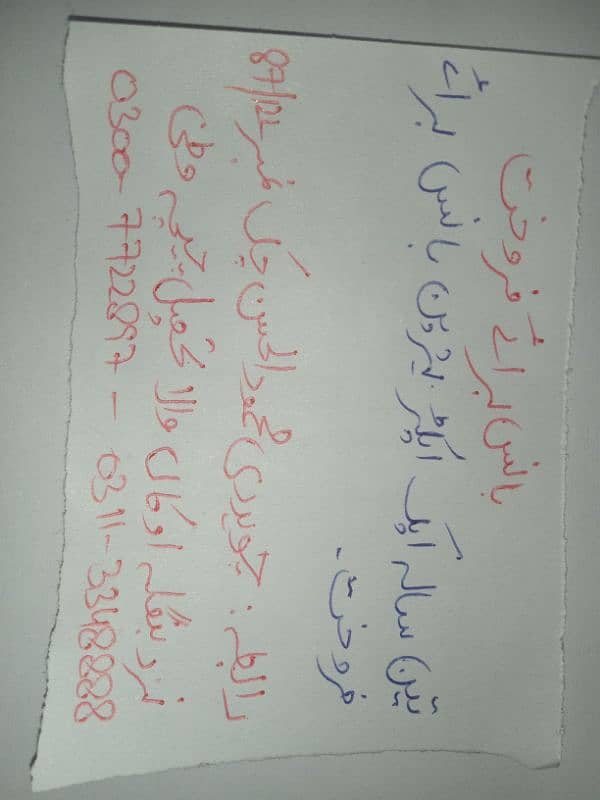 بانس برائے فروخت
تین سالہ ایک ایکڑ بہترین بانس برائے
فروخت۔
رابطہ: چوہدری محمود الحسن چک نمبر 87/12L
نزد بنگلہ اوکاں والا تحصیل چیچہ وطنی
0300-7722897 - 0311-3348888